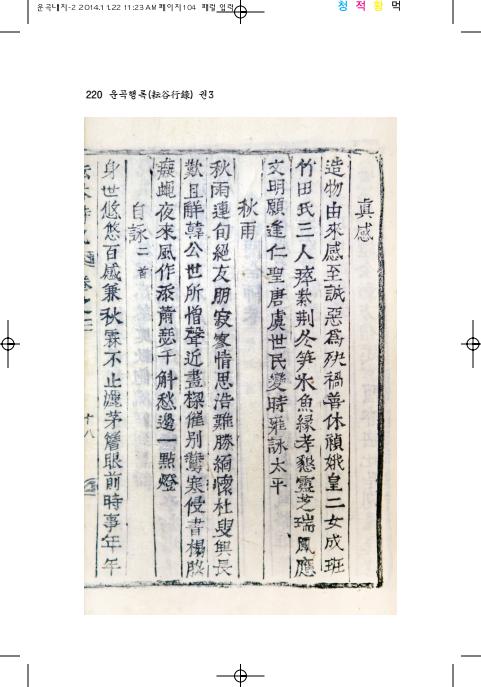 운곡내지-2 2014.11.22 11:23 AM 페이지104 패컬 업력
청 적 황 먹
220 운곡행록(耘谷行錄) 권3
真感
造物由來感至誠惡爲殃禍善休禎娥皇二女成班
竹田氏三人瘁紫荆冬笋氷魚緣孝懇靈芝瑞鳳應
文明願逢仁聖唐虞世民變時雍詠太平
秋雨
秋雨連旬絕友朋寂寥情思浩難勝緬懷杜叟興長
歎且解韓公世所憎聲近畫樑催别鷰寒侵書榻
癡蠅夜來風作添蕭瑟千斛愁邊一點燈
自詠二首
身世悠悠百感兼秋霖不止漉茅簷眼前時事年年
十八